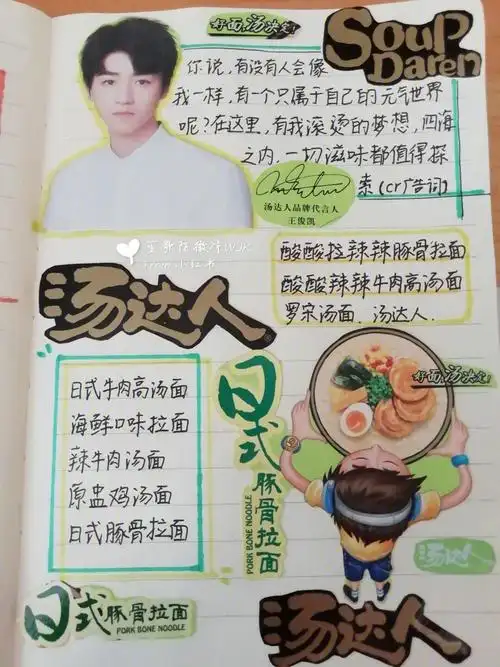 好面,汤决定!
Soup
Daren
你说,有没有人会像
我一样,有一个只属于自己的元气世界
呢?在这里,有我滚烫的梦想,四海
之内,一切滋味都值得探
索(cr广告词)
汤达人品牌代言人
王俊凯
小红书
汤达人
酸酸拉辣辣豚骨拉面
酸酸辣辣牛肉高汤面
罗宋汤面、汤达人.
日式牛肉高汤面
海鲜口味拉面
辣牛肉汤面
原盅鸡汤面
日式豚骨拉面
日式豚骨拉面
PORK BONE NOODLE
好面,汤决定!
汤达人
日式豚骨拉面
PORK BONE NOODLE
汤达人